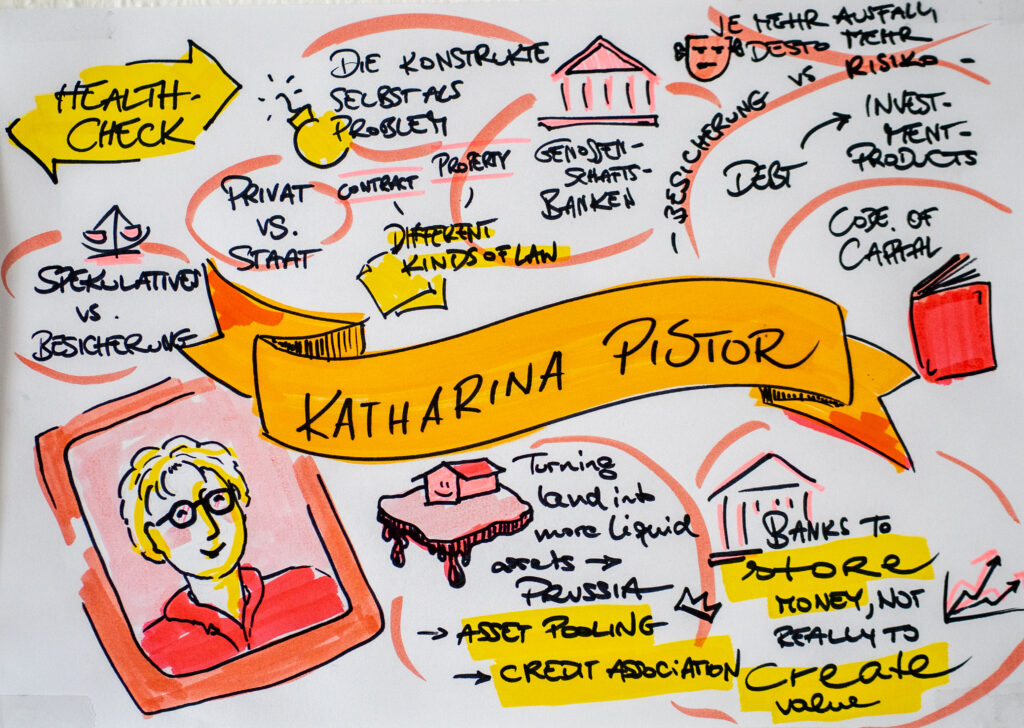 HEALTH-
CHECK
DIE KONSTRUKTE
SELBST ALS
PROBLEM
GENOSSEN-
SCHAFTS-
BANKEN
JE MEHR AUSFALL,
DESTO MEHR
RISIKO -
VS
- BESICHERUNG
DEBT
INVEST-
MENT-
PRODUCTS
CODE OF
CAPITAL
PRIVAT
VS.
STAAT
CONTRACT
PROPERTY
DIFFERENT
KINDS OF LAW
SPEKULATIVEN
VS.
BESICHERUNG
KATHARINA PISTOR
Turning
land into
more liquid
assets →
PRUSSIA
→ ASSET POOLING
→ CREDIT ASSOCIATION
BANKS TO
store
MONEY, NOT
REALLY TO
create
value